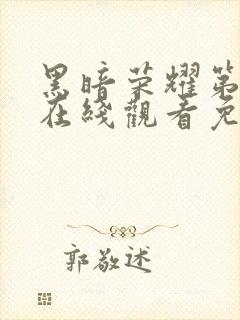 黑暗荣耀第
在綫觀看免
郭敬述